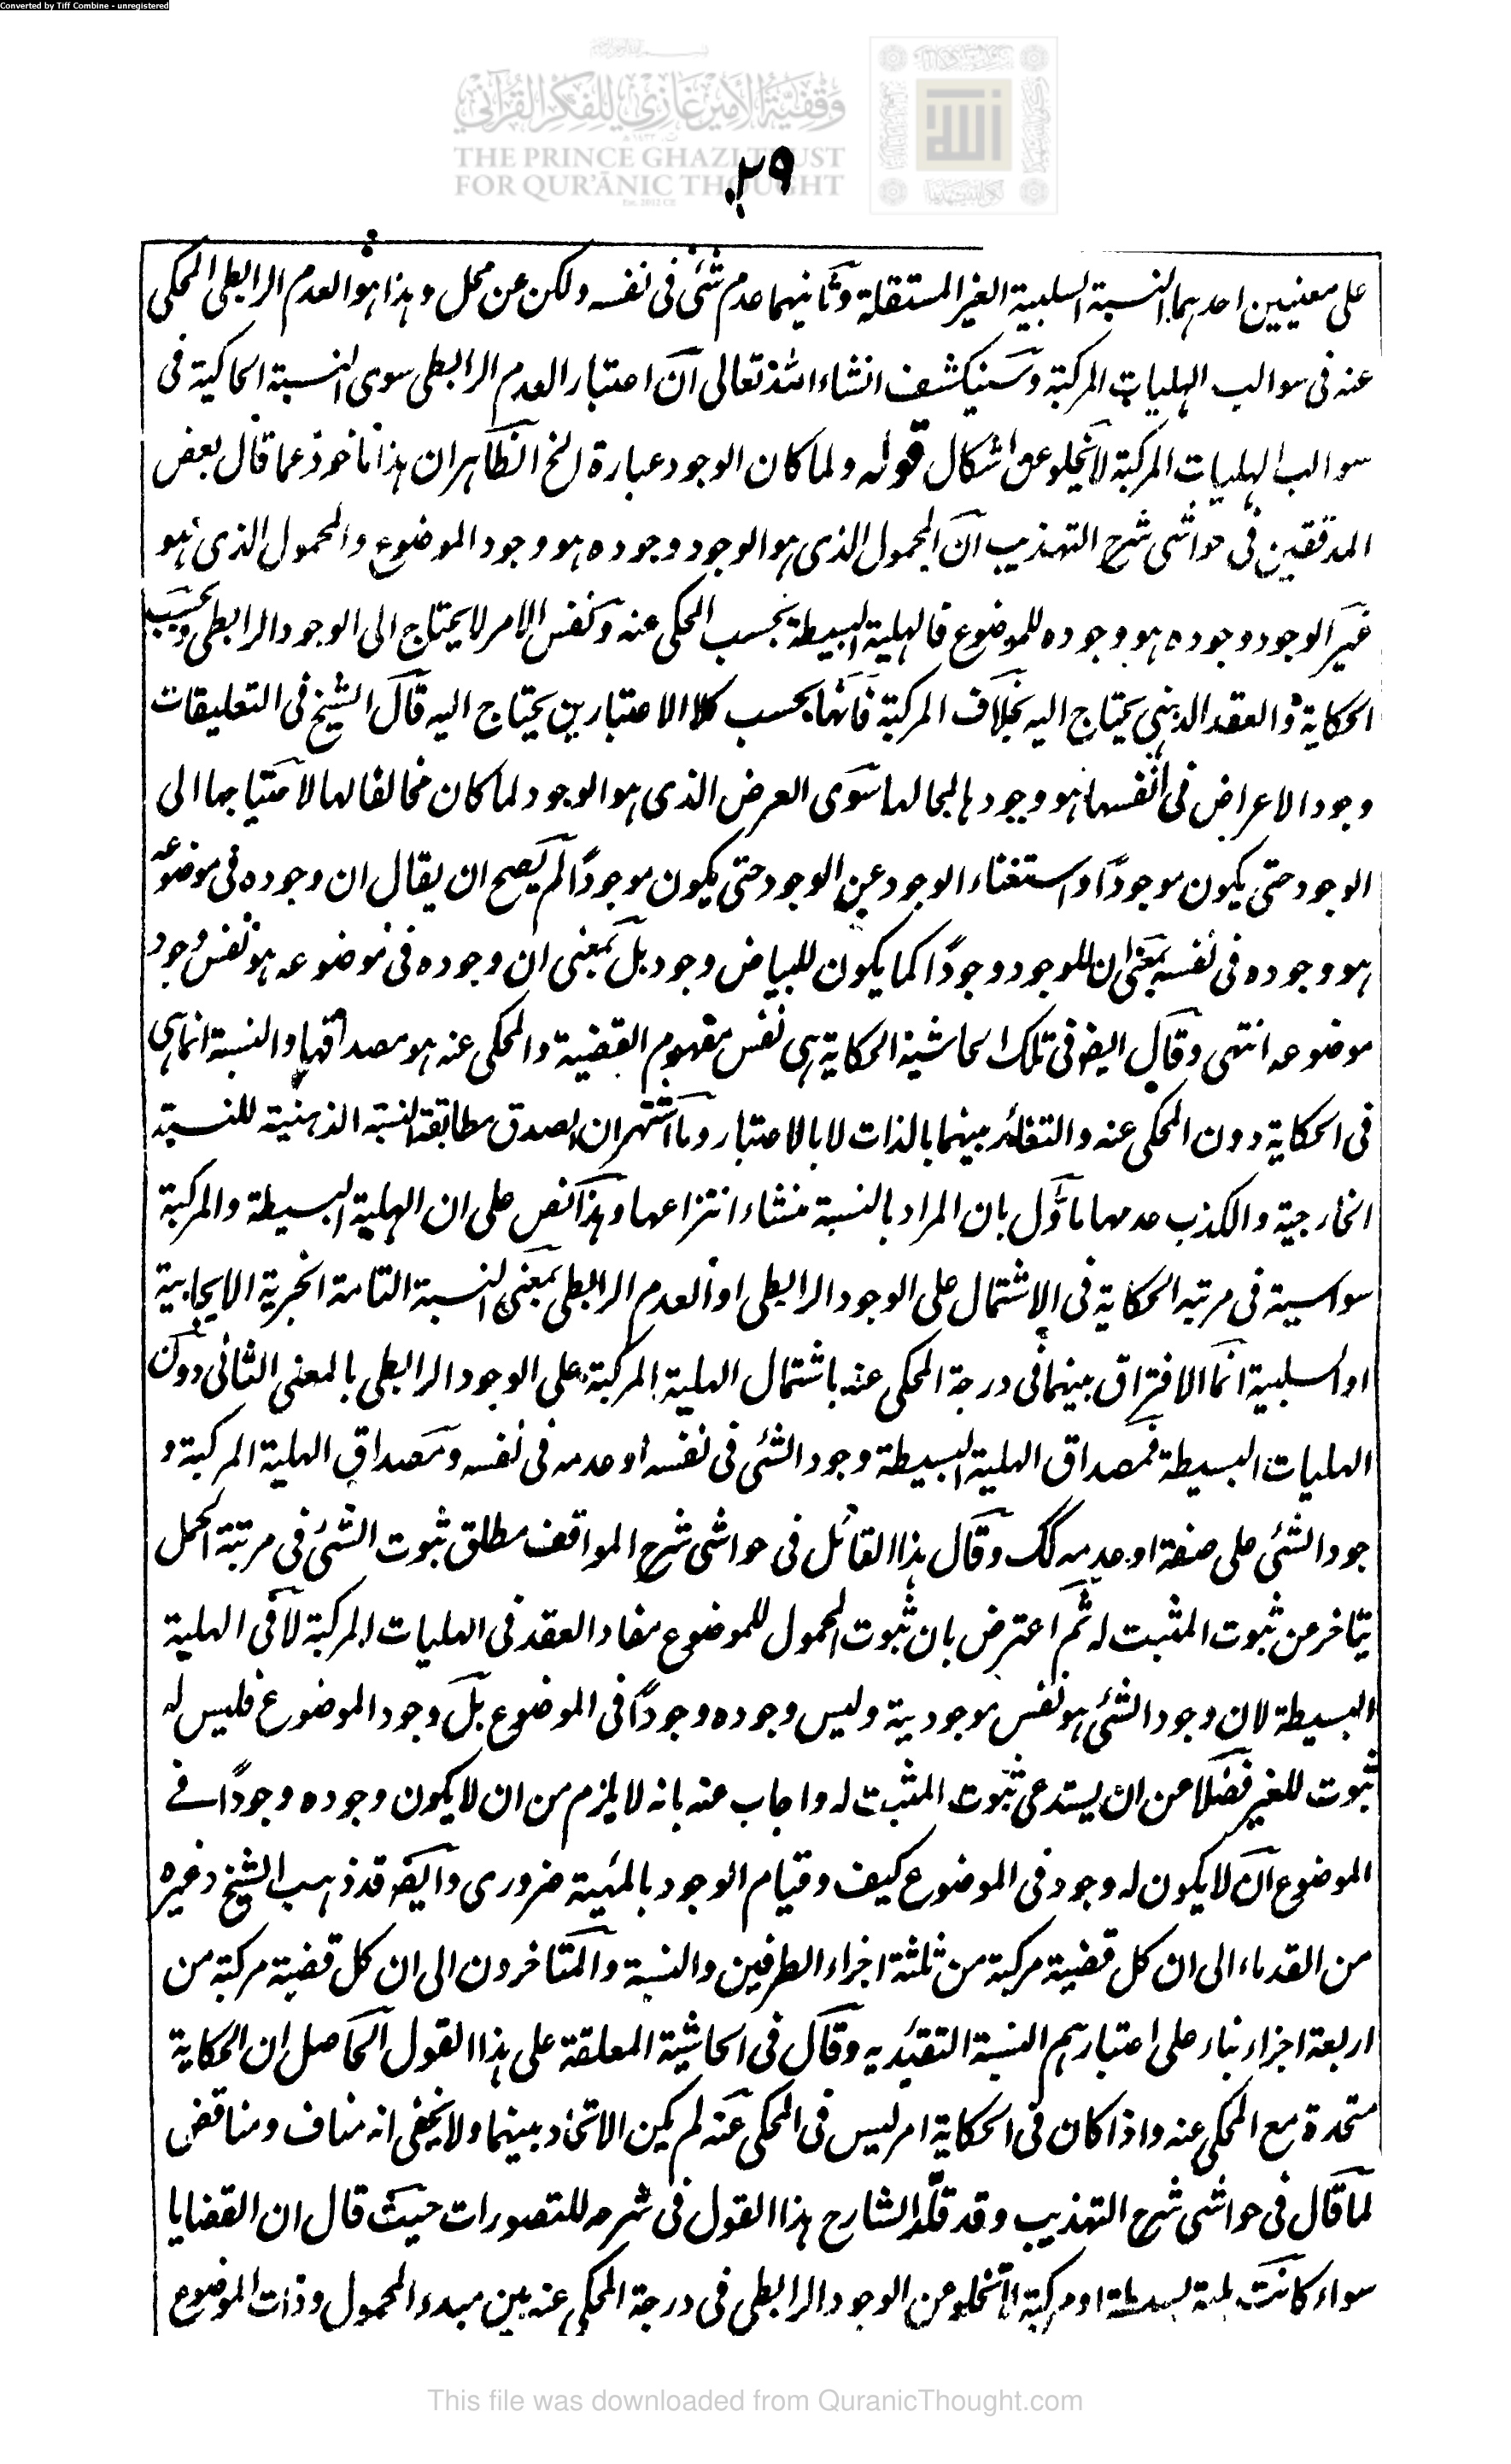 Converted by Tiff Combine - unregistered
وقفية الأمير غازي للفكر القرآني
THE PRINCE GHAZI TRUST
FOR QUR'ĀNIC THOUGHT
٢٩
على معنيين احدهما النسبة السلبية الغير المستقلة وثانيهما عدم شئ فى نفسه ولكن عن محل وهذا هو العدم الرابطى المحكى
عنه فى سوالب الهليات المركبة وسينكشف انشاء الله تعالى ان اعتبار العدم الرابطى سوى النسبة الحاكية فى
سوالب الهليات المركبة لا يخلو عن اشكال قوله ولما كان الوجود عبارة الخ الظاهر ان هذا ماخوذ عما قال بعض
المدققين فى حواشى شرح التهذيب ان المحمول الذى هو الوجود وجوده هو وجود الموضوع والمحمول الذى هو
غير الوجود وجوده هو وجوده للموضوع فالهلية البسيطة بحسب المحكى عنه ونفس الامر لا يحتاج الى الوجود الرابطى وبحسب
الحكاية والعقد الذهنى يحتاج اليه بخلاف المركبة فانها بحسب كلا الاعتبارين يحتاج اليه قال الشيخ فى التعليقات
وجود الاعراض فى انفسها هو وجودها لمحالها سوى العرض الذى هو الوجود لما كان مخالفا لها لاحتياجها الى
الوجود حتى يكون موجودًا واستغناء الوجود عن الوجود حتى يكون موجودًا لم يصح ان يقال ان وجوده فى موضوعه
هو وجوده فى نفسه بمعنى ان للوجود وجودًا كما يكون للبياض وجود بل بمعنى ان وجوده فى موضوعه هو نفس وجود
موضوعه انتهى وقال ايضا فى تلك الحاشية الحكاية هى نفس مفهوم القضية والمحكى عنه هو مصداقها والنسبة انما هى
فى الحكاية دون المحكى عنه والتغائر بينهما بالذات لا بالاعتبار وما اشتهر ان الصدق مطابقة النسبة الذهنية للنسبة
الخارجية والكذب عدمها ماؤل بان المراد بالنسبة منشاء انتزاعها وهذا نص على ان الهلية البسيطة والمركبة
سواسية فى مرتبة الحكاية فى الاشتمال على الوجود الرابطى او العدم الرابطى بمعنى النسبة التامة الخبرية الايجابية
او السلبية انما الافتراق بينهما فى درجة المحكى عنه باشتمال الهلية المركبة على الوجود الرابطى بالمعنى الثانى دون
الهليات البسيطة فمصداق الهلية البسيطة وجود الشئ فى نفسه او عدمه فى نفسه ومصداق الهلية المركبة و
جود الشئ على صفة او عدمه كك وقال هذا القائل فى حواشى شرح المواقف مطلق ثبوت الشئ فى مرتبة الحمل
يتاخر عن ثبوت المثبت له ثم اعترض بان ثبوت المحمول للموضوع مفاد العقد فى الهليات المركبة لا فى الهلية
البسيطة لان وجود الشئ هو نفس موجودية وليس وجوده وجودًا فى الموضوع بل وجود الموضوع فليس له
ثبوت للغير فضلا عن ان يستدعى ثبوت المثبت له واجاب عنه بانه لا يلزم من ان لا يكون وجوده وجودًا فى
الموضوع ان لا يكون له وجود فى الموضوع كيف وقيام الوجود بالمهية ضرورى وايضا قد ذهب الشيخ وغيره
من القدماء الى ان كل قضية مركبة من ثلثة اجزاء الطرفين والنسبة والمتاخرون الى ان كل قضية مركبة من
اربعة اجزاء بناء على اعتبارهم النسبة التقئيديه وقال فى الحاشية المعلقة على هذا القول الحاصل ان الحكاية
متحدة مع المحكى عنه واذا كان فى الحكاية امر ليس فى المحكى عنه لم يكن الاتحاد بينهما ولا يخفى انه مناف ومناقض
لما قال فى حواشى شرح التهذيب وقد قلد الشارح هذا القول فى شرحه للتصورات حيث قال ان القضايا
سواء كانت هلية بسيطة او مركبة لا تخلو عن الوجود الرابطى فى درجة المحكى عنه بين مبدء المحمول وذات الموضوع
This file was downloaded from QuranicThought.com